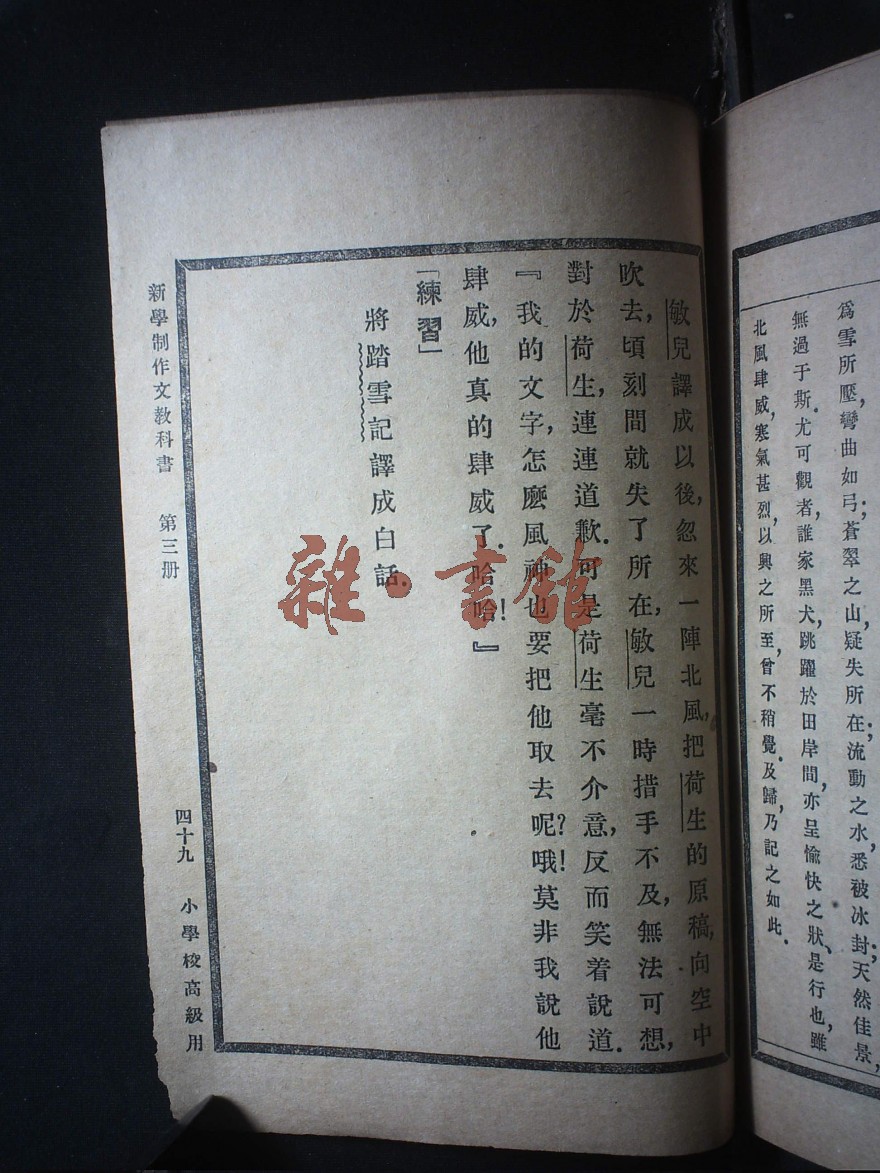 爲雪所壓,彎曲如弓;蒼翠之山,疑失所在;流動之水,悉被冰封;天然佳景,
無過于斯.尤可觀者,誰家黑犬,跳躍於田岸間,亦呈愉快之狀、是行也,雖
北風肆威,寒氣甚烈,以興之所至,曾不稍覺.及歸,乃記之如此.
敏兒譯成以後,忽來一陣北風,把荷生的原稿,向空中
吹去,頃刻間就失了所在,敏兒一時措手不及,無法可想,
對於荷生,連連道歉.可是荷生毫不介意,反而笑着說道.
『我的文字,怎麽風神也要把他取去呢?哦!莫非我說他
肆威,他真的肆威了.哈哈!』
「練習」
將踏雪記譯成白話.
新學制作文教科書 第三册 四十九 小學校高級用
雜·書館